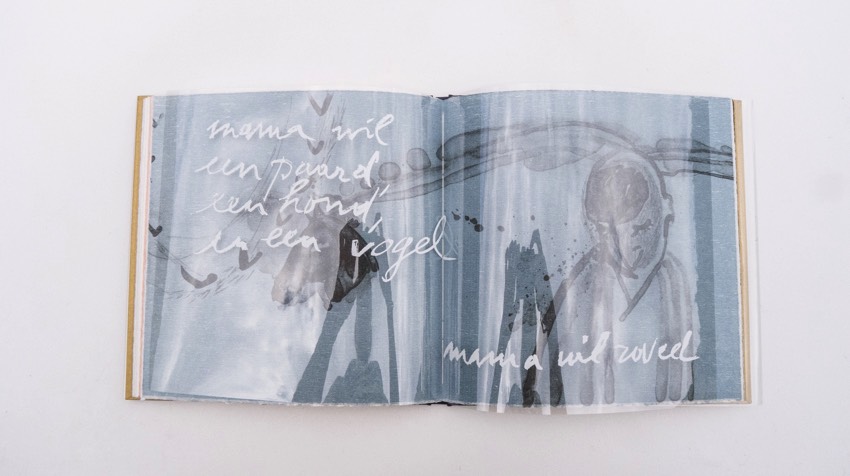 mama wil
een paard
een hond
en een vogel
mama wil zoveel